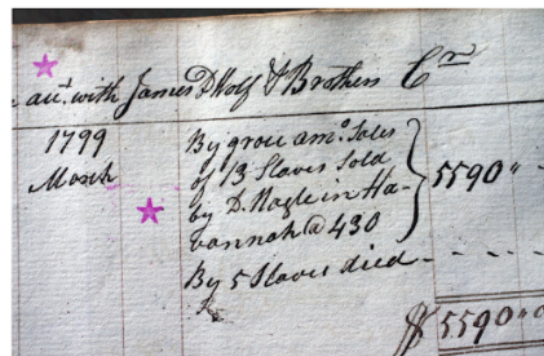 acct. with James D Wolf & Brothers Cr
1799
March
By groce amo. Sales
of 13 Slaves Sold
by D. Nagle in Ha-
vannah @ 430
5590 "
By 5 Slaves died
$ 5590 " 0